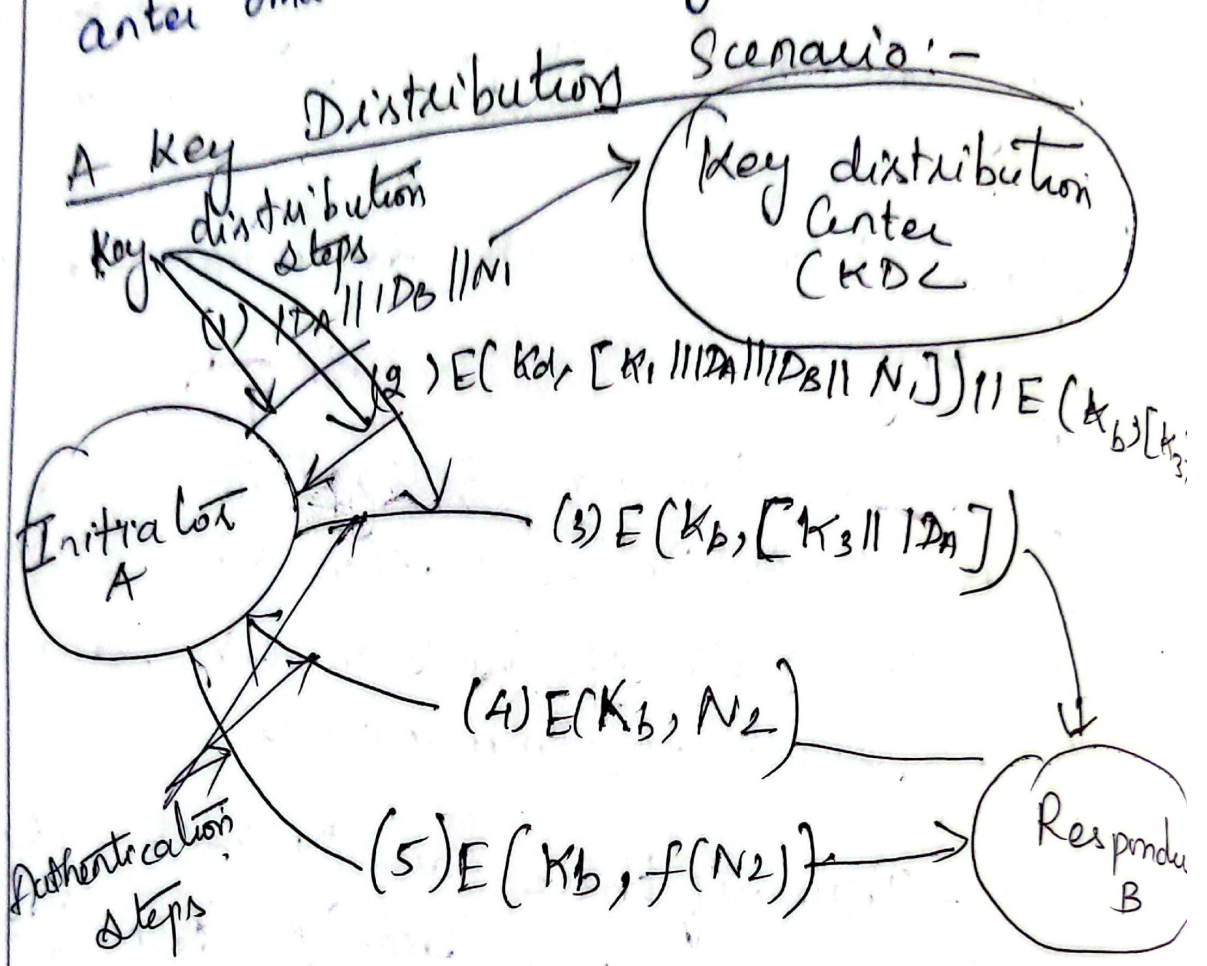 A Key Distribution Scenario :-
Key distribution
steps
Key distribution
Center
(KDC
(1) IDA || IDB || N1
(2) E( Kd, [K1 || IDA || IDB || N1]) || E (Kb, [K3
Initiator
A
(3) E (Kb, [K3 || IDA])
(4) E(Kb, N2)
(5) E (Kb, f(N2))
Authentication
steps
B